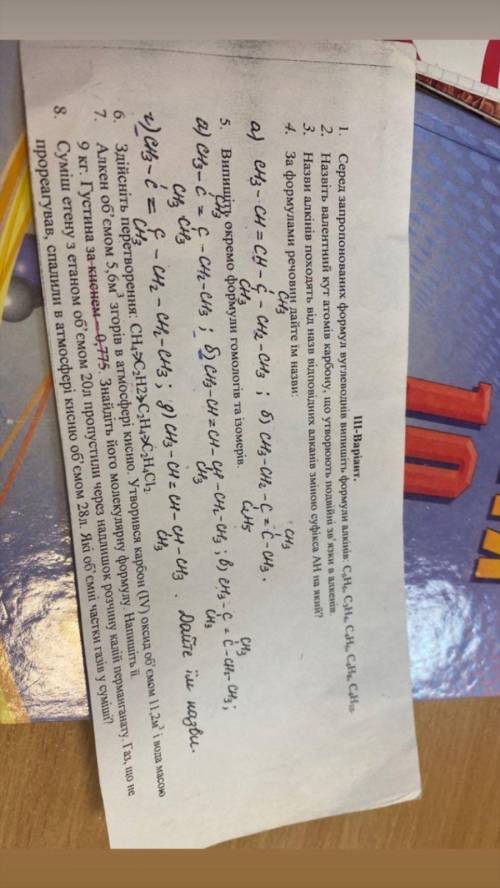 ІІІ-Варіант.
1. Серед запропонованих формул вуглеводнів випишіть формули алкінів:
2. Назвіть валентний кут атомів карбону, що утворюють подвійні зв'язки в алкенів.
3. Назви алкінів походять від назв відповідних алканів зміною суфікса АН на який?
4. За формулами речовин дайте їм назви:
CH3 CH3
а) CH3 - CH = CH - C - CH2 - CH3 ; б) CH3 - CH2 - C = C - CH3.
CH3 C2H5
5. Випишіть окремо формули гомологів та ізомерів.
CH3 CH3
а) CH3 - C = C - CH2 - CH3 ; б) CH3 - CH = CH - CH - CH2 - CH3 ; в) CH3 - C = C - CH2 - CH3 ;
CH3 CH3 CH3
CH3
г) CH3 - C = C - CH2 - CH2 - CH3 ; д) CH3 - CH = CH - CH - CH3 . Дайте їм назви.
CH3 CH3
6. Здійсніть перетворення: CH4→C2H2→C2H4→C2H4Cl2.
7. Алкен об'ємом 5,6м³ згорів в атмосфері кисню. Утворився карбон (IV) оксид об'ємом 11,2м³ і вода масою
9 кг. Густина за киснем – 0,775. Знайдіть його молекулярну формулу. Напишіть її.
8. Суміш етену з етаном об'ємом 20л пропустили через надлишок розчину калій перманганату. Газ, що не
прореагував, спалили в атмосфері кисню об'ємом 28л. Які об'ємні частки газів у суміші?